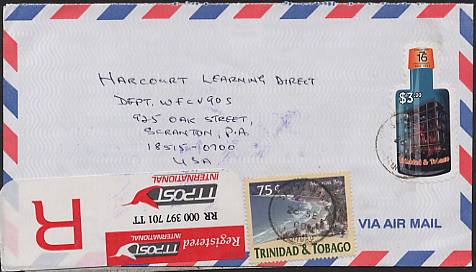 HARCOURT LEARNING DIRECT
DEPT. WFCV905
925 OAK STREET,
SCRANTON, P.A.
18515-0700
USA
16
$3.00
Trinidad & Tobago
75¢
TRINIDAD & TOBAGO
VIA AIR MAIL
R
TTPOST
INTERNATIONAL
RR 000 397 701 TT
Registered
INTERNATIONAL
TTPOST
INTERNATIONAL